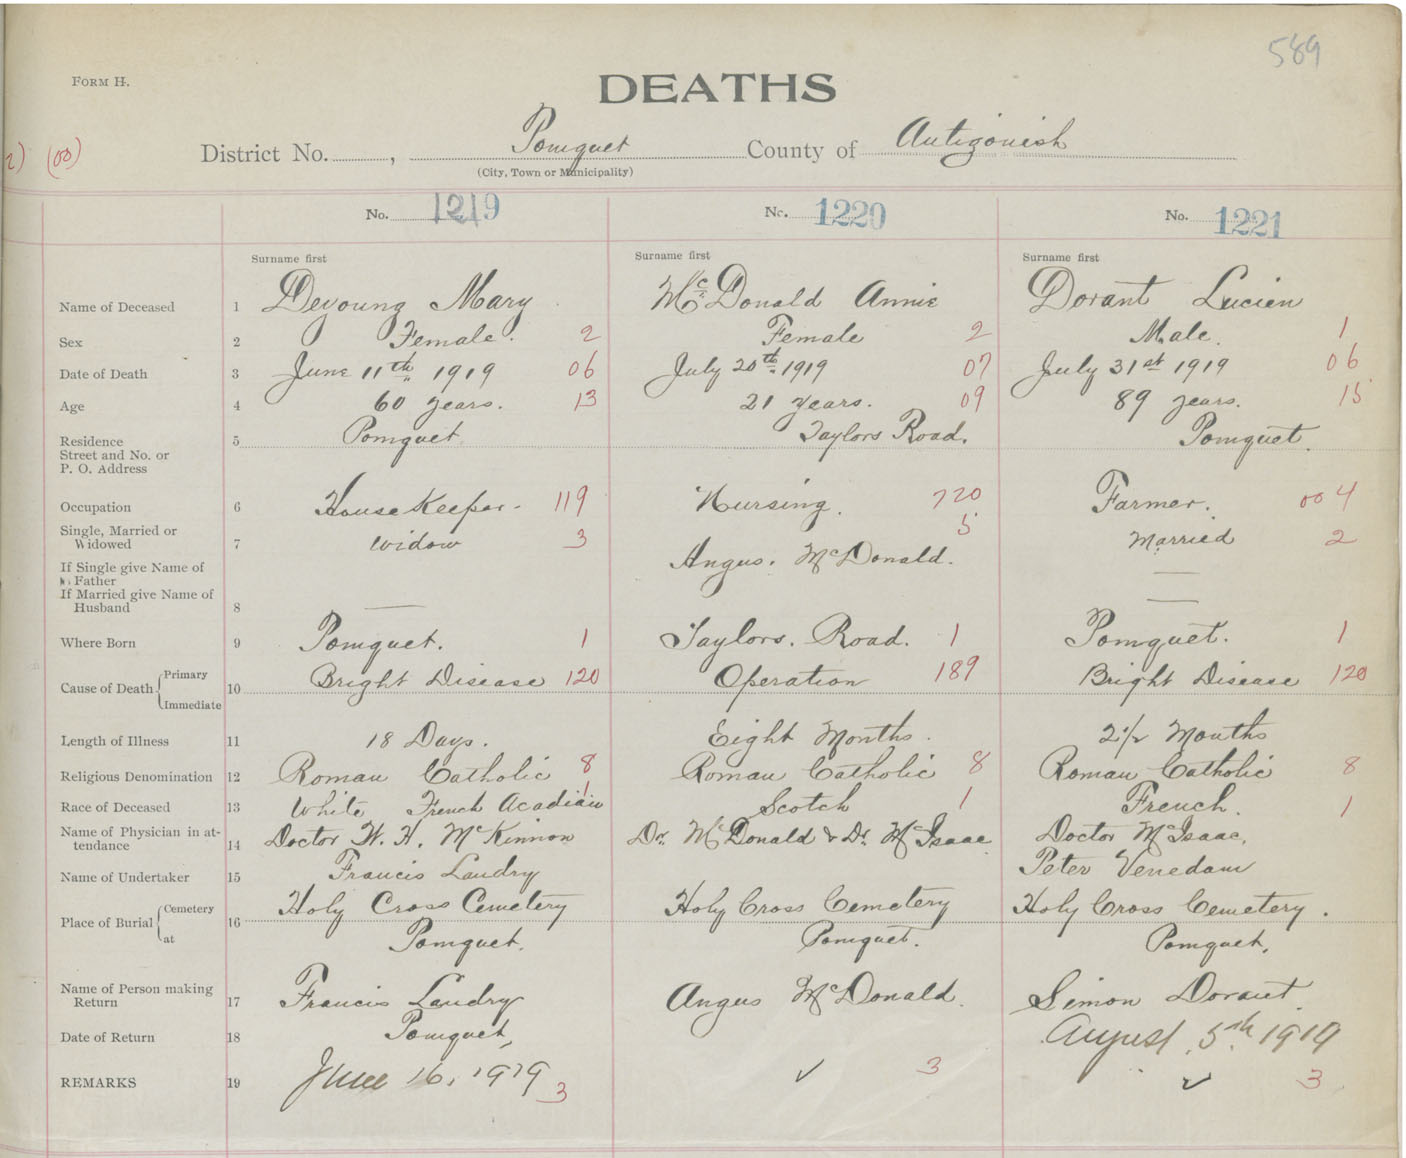 589
FORM H.
DEATHS
2) (00)
District No. , Pomquet County of Antigonish
(City, Town or Municipality)
No. 1219 No. 1220 No. 1221
Surname first Surname first Surname first
Name of Deceased 1 Deyoung Mary McDonald Annie Dorant Lucien
Sex 2 Female. 2 Female 2 Male. 1
Date of Death 3 June 11th 1919 06 July 20th 1919 07 July 31st 1919 06
Age 4 60 years. 13 21 years. 09 89 years. 15
Residence 5 Pomquet Taylors Road. Pomquet.
Street and No. or
P. O. Address
Occupation 6 House Keeper. 119 Nursing. 720 Farmer. 00 4
Single, Married or
Widowed 7 widow 3 5 Married 2
If Single give Name of Angus. McDonald. —
Father
If Married give Name of —
Husband 8 —
Where Born 9 Pomquet. 1 Taylors. Road. 1 Pomquet. 1
Cause of Death Primary 10 Bright Disease 120 Operation 189 Bright Disease 120
Immediate
Length of Illness 11 18 Days. Eight Months. 2 1/2 Months
Religious Denomination 12 Roman Catholic 8 Roman Catholic 8 Roman Catholic 8
Race of Deceased 13 White French Acadian 1 Scotch 1 French. 1
Name of Physician in at-
tendance 14 Doctor W. H. McKinnon Dr. McDonald & Dr. McIsaac Doctor McIsaac.
Name of Undertaker 15 Francis Landry Peter Venedam
Place of Burial Cemetery 16 Holy Cross Cemetery Holy Cross Cemetery Holy Cross Cemetery.
at Pomquet. Pomquet. Pomquet.
Name of Person making
Return 17 Francis Landry Angus McDonald. Simon Dorant
Date of Return 18 Pomquet, August. 5th 1919
REMARKS 19 June 16, 1919 3 ✓ 3 ✓ 3